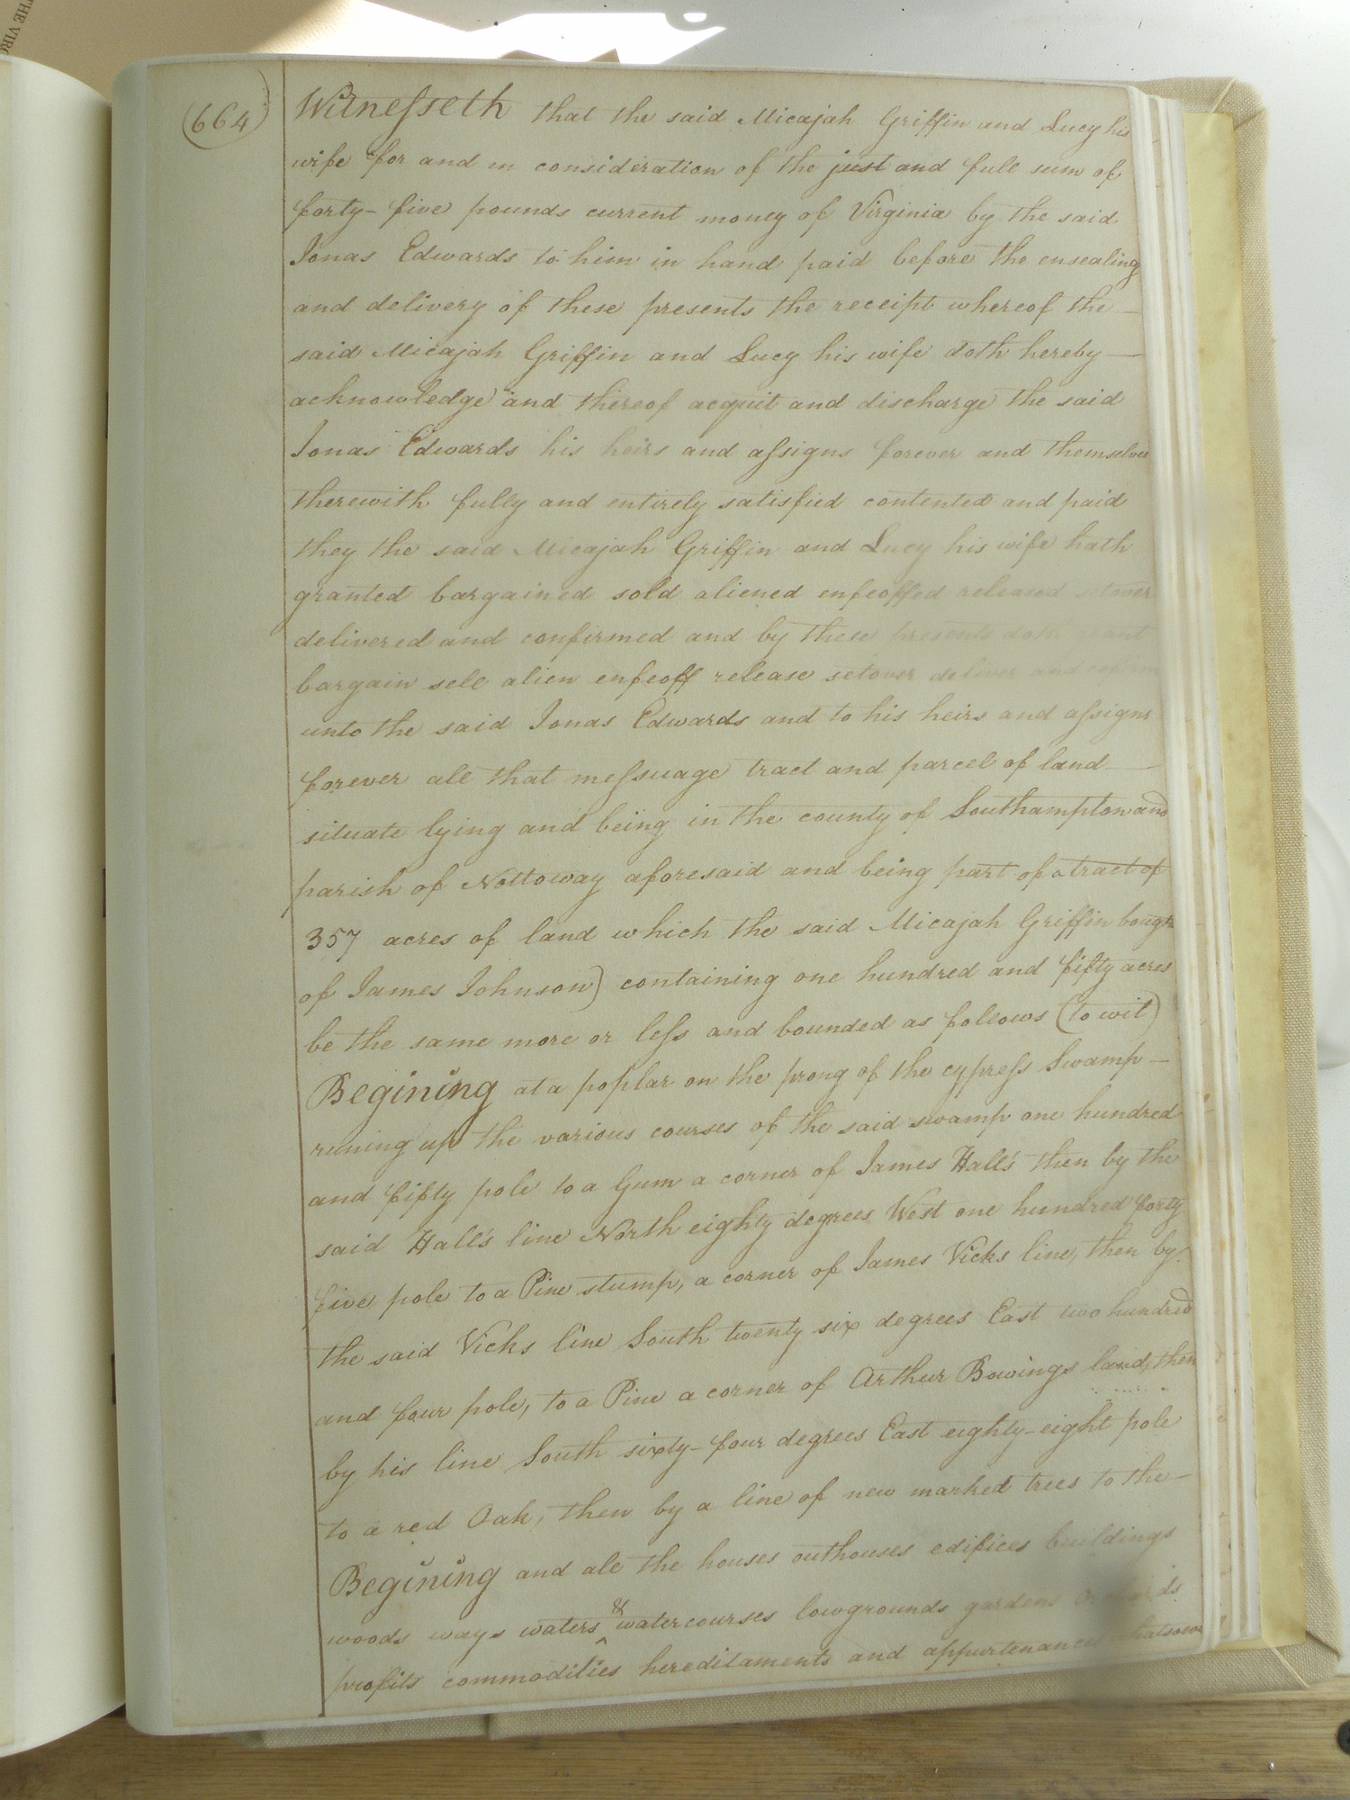 THE VIRG
664
Witnesseth that the said Micajah Griffin and Lucy his
wife for and in consideration of the just and full sum of
forty-five pounds current money of Virginia by the said
Jonas Edwards to him in hand paid before the ensealing
and delivery of these presents the receipt whereof the —
said Micajah Griffin and Lucy his wife doth hereby —
acknowledge and thereof acquit and discharge the said
Jonas Edwards his heirs and assigns forever and themselves
therewith fully and entirely satisfied contented and paid
they the said Micajah Griffin and Lucy his wife hath
granted bargained sold aliened enfeoffed released setover
delivered and confirmed and by these presents doth grant
bargain sell alien enfeoff release setover deliver and confirm
unto the said Jonas Edwards and to his heirs and assigns
forever all that messuage tract and parcel of land —
situate lying and being in the county of Southampton and
parish of Nottoway aforesaid and being part of a tract of
357 acres of land which the said Micajah Griffin bought
of James Johnson) containing one hundred and fifty acres
be the same more or less and bounded as follows (to wit)
Begining at a poplar on the prong of the cypress Swamp —
runing up the various courses of the said swamp one hundred
and fifty pole to a Gum a corner of James Hall's then by the
said Hall's line North eighty degrees West one hundred forty
five pole to a Pine stump, a corner of James Vicks line, then by
the said Vicks line South twenty six degrees East two hundred
and four pole, to a Pine a corner of Arthur Bowings land, then
by his line South sixty-four degrees East eighty-eight pole
to a red Oak, then by a line of new marked trees to the —
Begining and all the houses outhouses edifices buildings
woods ways waters & watercourses lowgrounds gardens Orchards
profits commodities hereditaments and appurtenances whatsoever